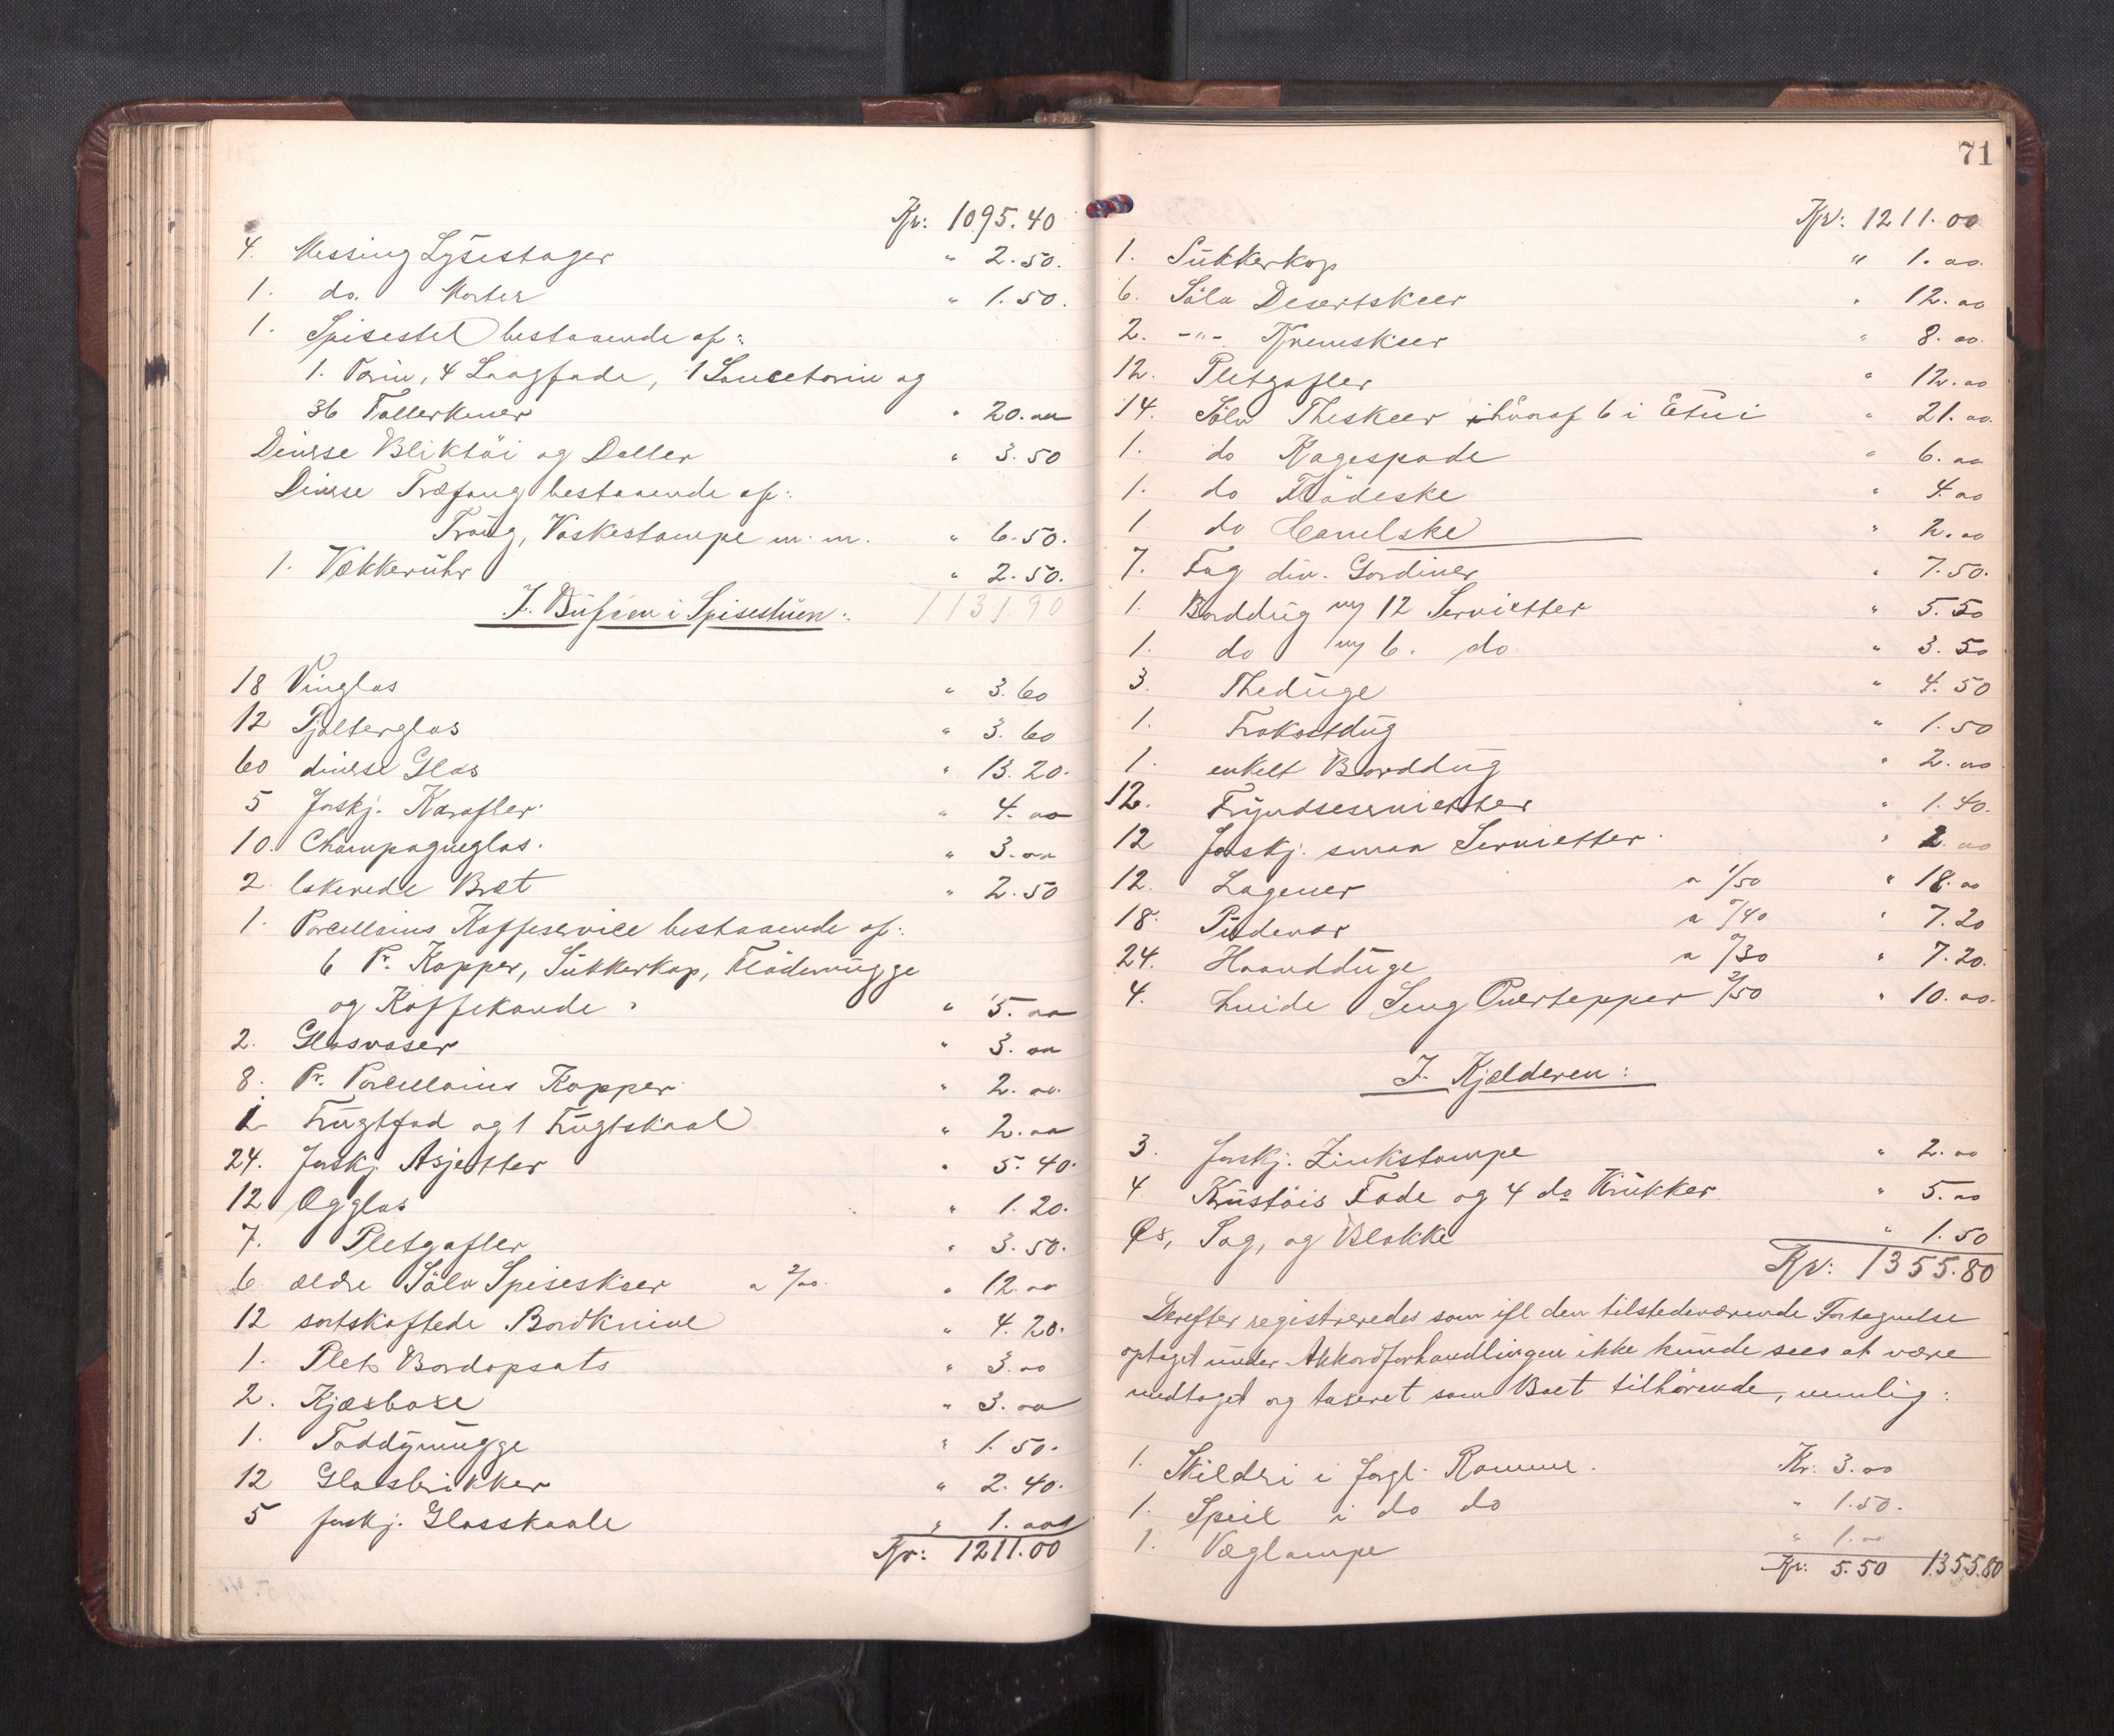 Kr: 1095.40
4. Messing Lysestager " 2.50.
1. do. Morter " 1.50.
1. Spisestel bestaaende af:
1. Terin, 4 Langfade, 1 Sauceterin og
36 Tallerkener " 20.00
Diverse Bliktöi og Daller " 3.50
Diverse Træfang bestaaende af:
Traug, Vaskestampe m. m. " 6.50.
1. Vækkeruhr " 2.50.
I. Buffeen i Spisestuen: 1131.90
18 Vinglas " 3.60
12 Pjolterglas " 3.60
60 diverse Glas " 13.20.
5 forskj. Karafler " 4.00
10. Champagneglas. " 3.00
2. lakerede Bræt " 2.50
1. Porcellains Kaffeservice bestaaende af:
6 Pr. Kopper, Sukkerkop, Flödemugge
og Kaffekande " 5.00
2. Glasvaser " 3.00
8. Pr. Porcellains Kopper " 2.00.
1 Frugtfad og 1 Frugtskaal " 2.00
24. forskj Asjetter " 5.40.
12 Ægglas " 1.20.
7. Pletgafler " 3.50.
6 ældre Sölv Spiseskeer a 2/00. " 12.00
12 sortskaftede Bordknive " 4.20.
1. Plets Bordopsats " 3.00
2. Kjæxboxe " 3.00
1. Toddymugge " 1.50.
12 Glasbrikker " 2.40.
5 forskj. Glasskaale " 1.00
Kr: 1211.00
71
Kr: 1211.00
1. Sukkerkop " 1.00.
6. Sölv Desertskeer " 12.00
2. -"- Kremskeer " 8.00.
12. Pletgafler " 12.00
14. Sölv Theskeer hvoraf 6 i Etui " 21.00.
1. do Kagespade " 6.00
1. do Flödeske " 4.00
1 do Canelske " 2.00
7. Fag div. Gardiner " 7.50.
1. Borddug m/ 12 Servietter " 5.50
1. do m/ 6. do " 3.50
3. Theduge " 4.50
1. Frokostdug " 1.50
1. enkelt Borddug " 2.00
12. Fryndseservietter " 1.40.
12 forskj. smaa Servietter. " 2.00
12. Lagener a 1/50 " 18.00
18. Pudevar a "/40 " 7.20
24. Haandduge a "/30 " 7.20.
4. hvide Seng Overtepper 2/50 " 10.00.
I. Kjælderen:
3. forskj. Zinkstampe " 2.00
4 Krustöis Fade og 4 do Krukker " 5.00
Øx, Sag, og Blokke " 1.50
Kr: 1355.80
Derefter registreredes som ifl den tilstedeværende Fortegnelse
optaget under Akkordforhandlingen ikke kunde sees at være
medtaget og taxeret som Boet tilhörende, nemlig:
1. Skilderi i forgl. Ramme. Kr. 3.00
1. Speil i do do " 1.50.
1. Væglampe " 1.00
Kr: 5.50 1355.80